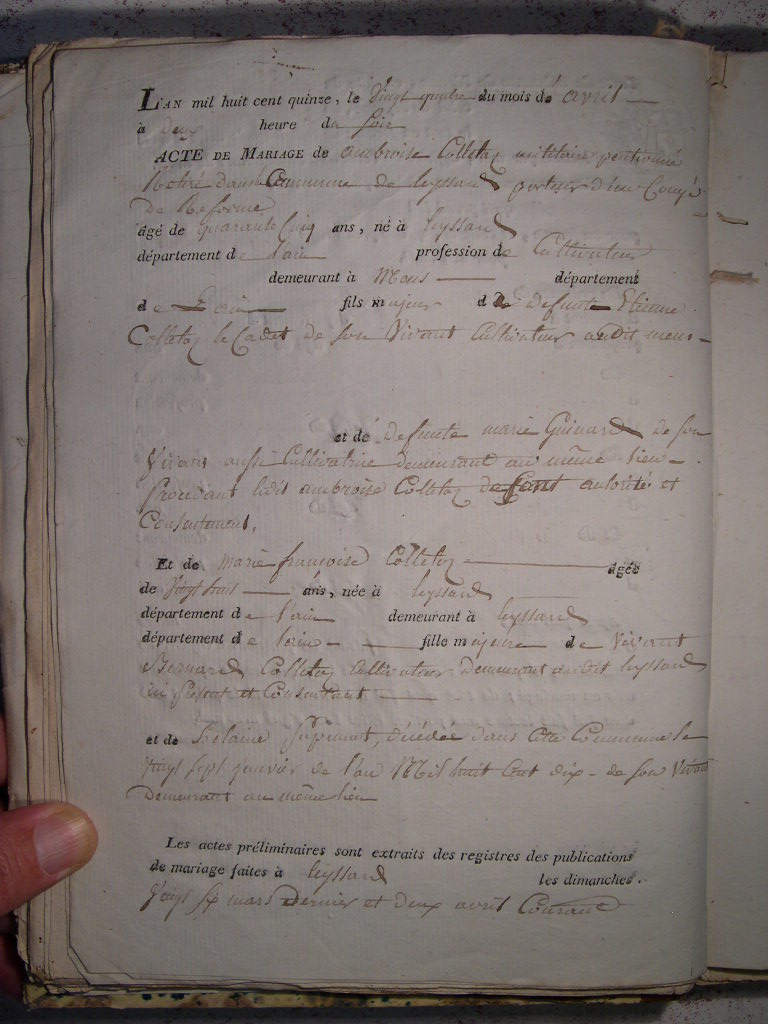 L'AN mil huit cent quinze, le Vingt quatre du mois de avril
à Deux heure du soir
ACTE DE MARIAGE de ambroise Colletaz militaire pentionné
Retiré dans la Commune de leyssard porteur d'un Congé
De Reforme
âgé de quarante Cinq ans, né à leyssard
département de l'ain profession de Cultivateur
demeurant à Mons département
de L'ain fils majeur de Defunte Etienne
Colletaz le Cadet de son Vivant Cultivateur audit mons
et de Defunte marie Guinard De son
Vivant aussi Cultivatrice demeurant au même lieu
procédant ledit ambroise Colletaz de autorité et
Consentement.
Et de marie françoise Colletaz âgée
de Vingt huit ans, née à leyssard
département de l'ain demeurant à leyssard
département de l'ain fille majeure de Vivant
Bernard Colletaz Cultivateur Demeurant audit leyssard
ici présent et Consentant
et de helaine, décédée dans Cette Commune le
Vingt sept janvier de l'an Mil huit Cent dix de son Vivant
Demeurant au même lieu
Les actes préliminaires sont extraits des registres des publications
de mariage faites à leyssard les dimanches.
Vingt six mars Dernier et deux avril Courant